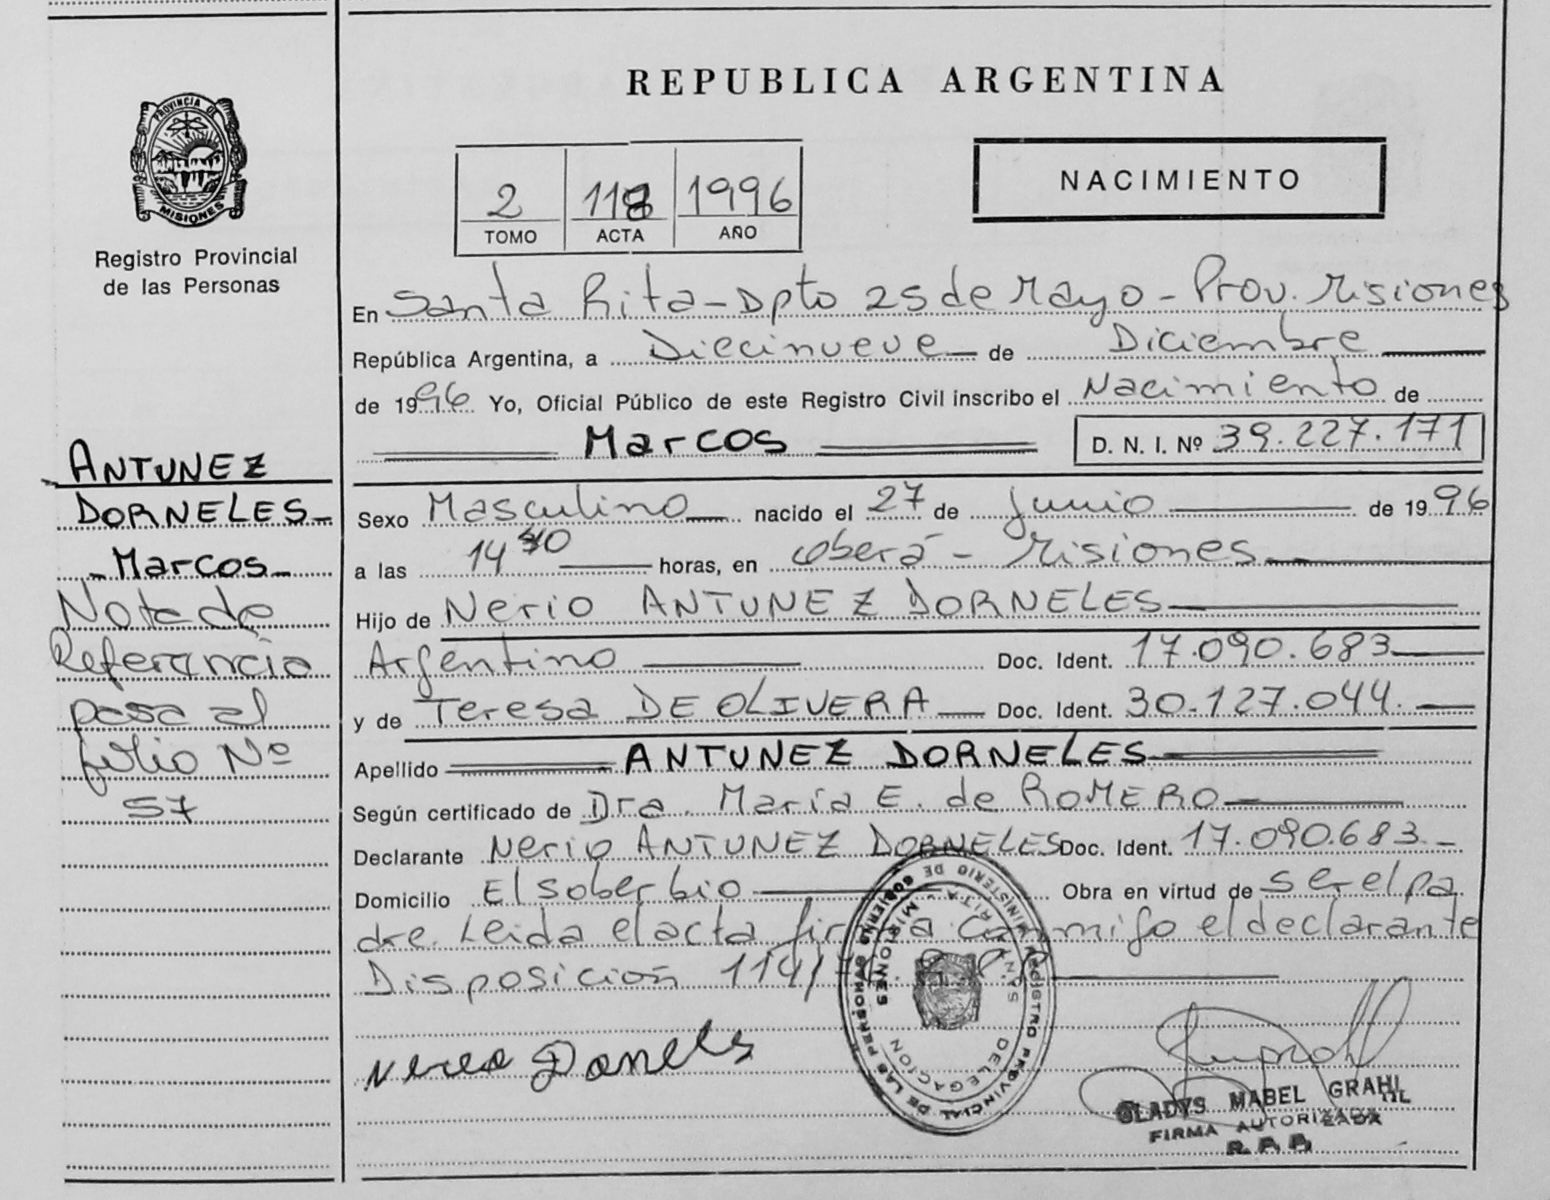 REPUBLICA ARGENTINA
PROVINCIA DE
MISIONES
Registro Provincial
de las Personas
2 118 1996
TOMO ACTA AÑO
NACIMIENTO
En Santa Rita - Dpto 25 de Mayo - Prov. Misiones
República Argentina, a Diecinueve de Diciembre
de 1996 Yo, Oficial Público de este Registro Civil inscribo el Nacimiento de
Marcos D. N. I. Nº 39.227.171
Sexo Masculino nacido el 27 de Junio de 1996
a las 14 40 horas, en Oberá - Misiones
Hijo de Nerio ANTUNEZ DORNELES
Argentino Doc. Ident. 17.090.683
y de Teresa DE OLIVERA Doc. Ident. 30.127.044.
Apellido ANTUNEZ DORNELES
Según certificado de Dra. María E. de ROMERO
Declarante Nerio ANTUNEZ DORNELES Doc. Ident. 17.090.683
Domicilio El soberbio Obra en virtud de ser el pa
dre. Leida el acta firma conmigo el declarante
Disposición 114/
ANTUNEZ
DORNELES
Marcos
Nota de
Referencia
pasa al
folio Nº
57
MINISTERIO DE GOBIERNO
REGISTRO PROVINCIAL DE LAS PERSONAS
DELEGACION
MISIONES
GLADYS MABEL GRAHL
FIRMA AUTORIZADA